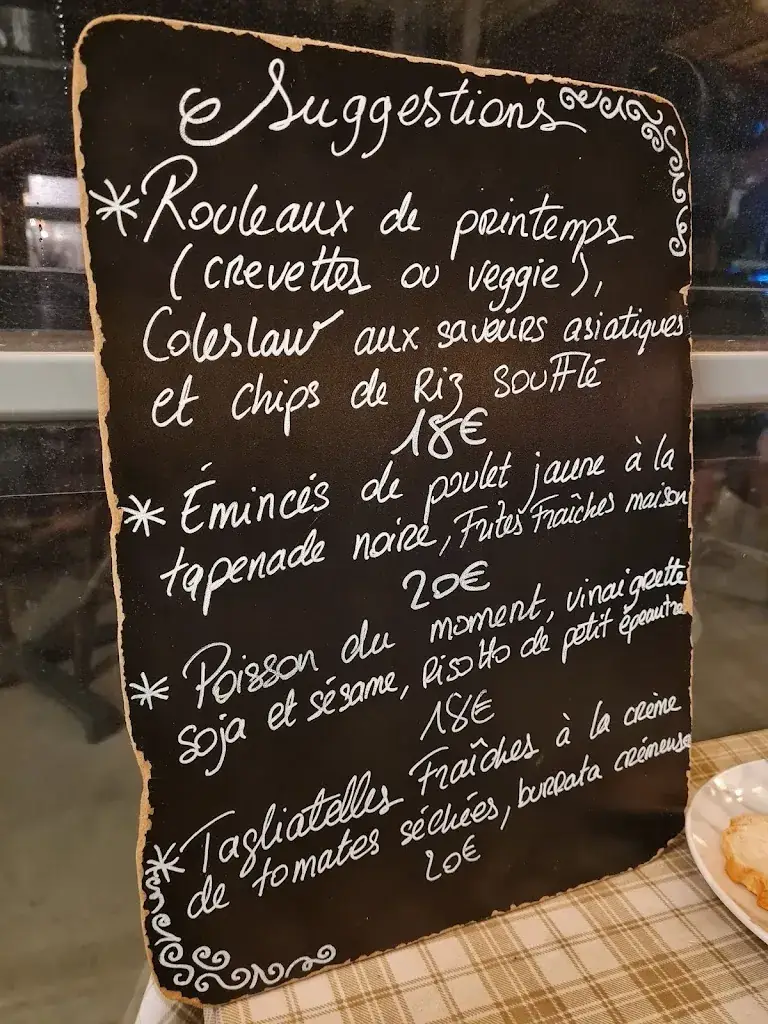 Suggestions
* Rouleaux de printemps
(crevettes ou veggie),
Coleslaw aux saveurs asiatiques
et chips de Riz soufflé
18€
* Émincés de poulet jaune à la
tapenade noire, Frites Fraîches maison
20€
* Poisson du moment, vinaigrette
soja et sésame, Risotto de petit épeautre
18€
* Tagliatelles Fraîches à la crème
de tomates séchées, burrata crémeuse
20€